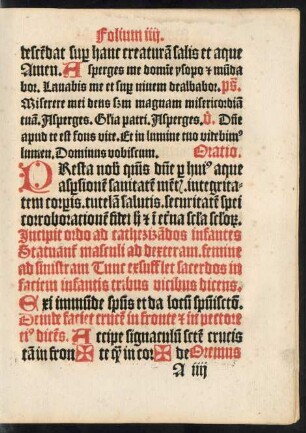 Folium iiij.
descēdat sup hanc creaturā salis et aque
Amen. Asperges me domīe ysopo & mūda
bor. Lauabis me et sup niuem dealbabor. ps̄.
Miserere mei deus scdm magnam misericordiā
tuā. Asperges. Glia patri. Asperges. V. Dn̄e
apud te est fons vite. Et in lumine tuo videbimꝰ
lumen. Dominus vobiscum. Oratio.
PResta nob̄ qs̄ dn̄e p huiꝰ aque
aspsionē sanitatē mēt̄, integrita-
tem corpis, tutelā salutis, securitatē spei
corroborationē fidei h̄ & ī et̄na scl̄a scl̄oꝝ.
Incipit ordo ad cathezizādos infantes
Statuant̄ masculi ad dexteram. femine
ad sinistram Tunc exsufflet sacerdos in
faciem infantis tribus vicibus dicens.
Exi immūde spūs et da locū spūiscto.
Deinde faciet crucē in fronte & in pectore
dicēs. Accipe signaculū sctē crucis
tā in fron ✠ te q̄ in cor ✠ de Oremus
A iiij